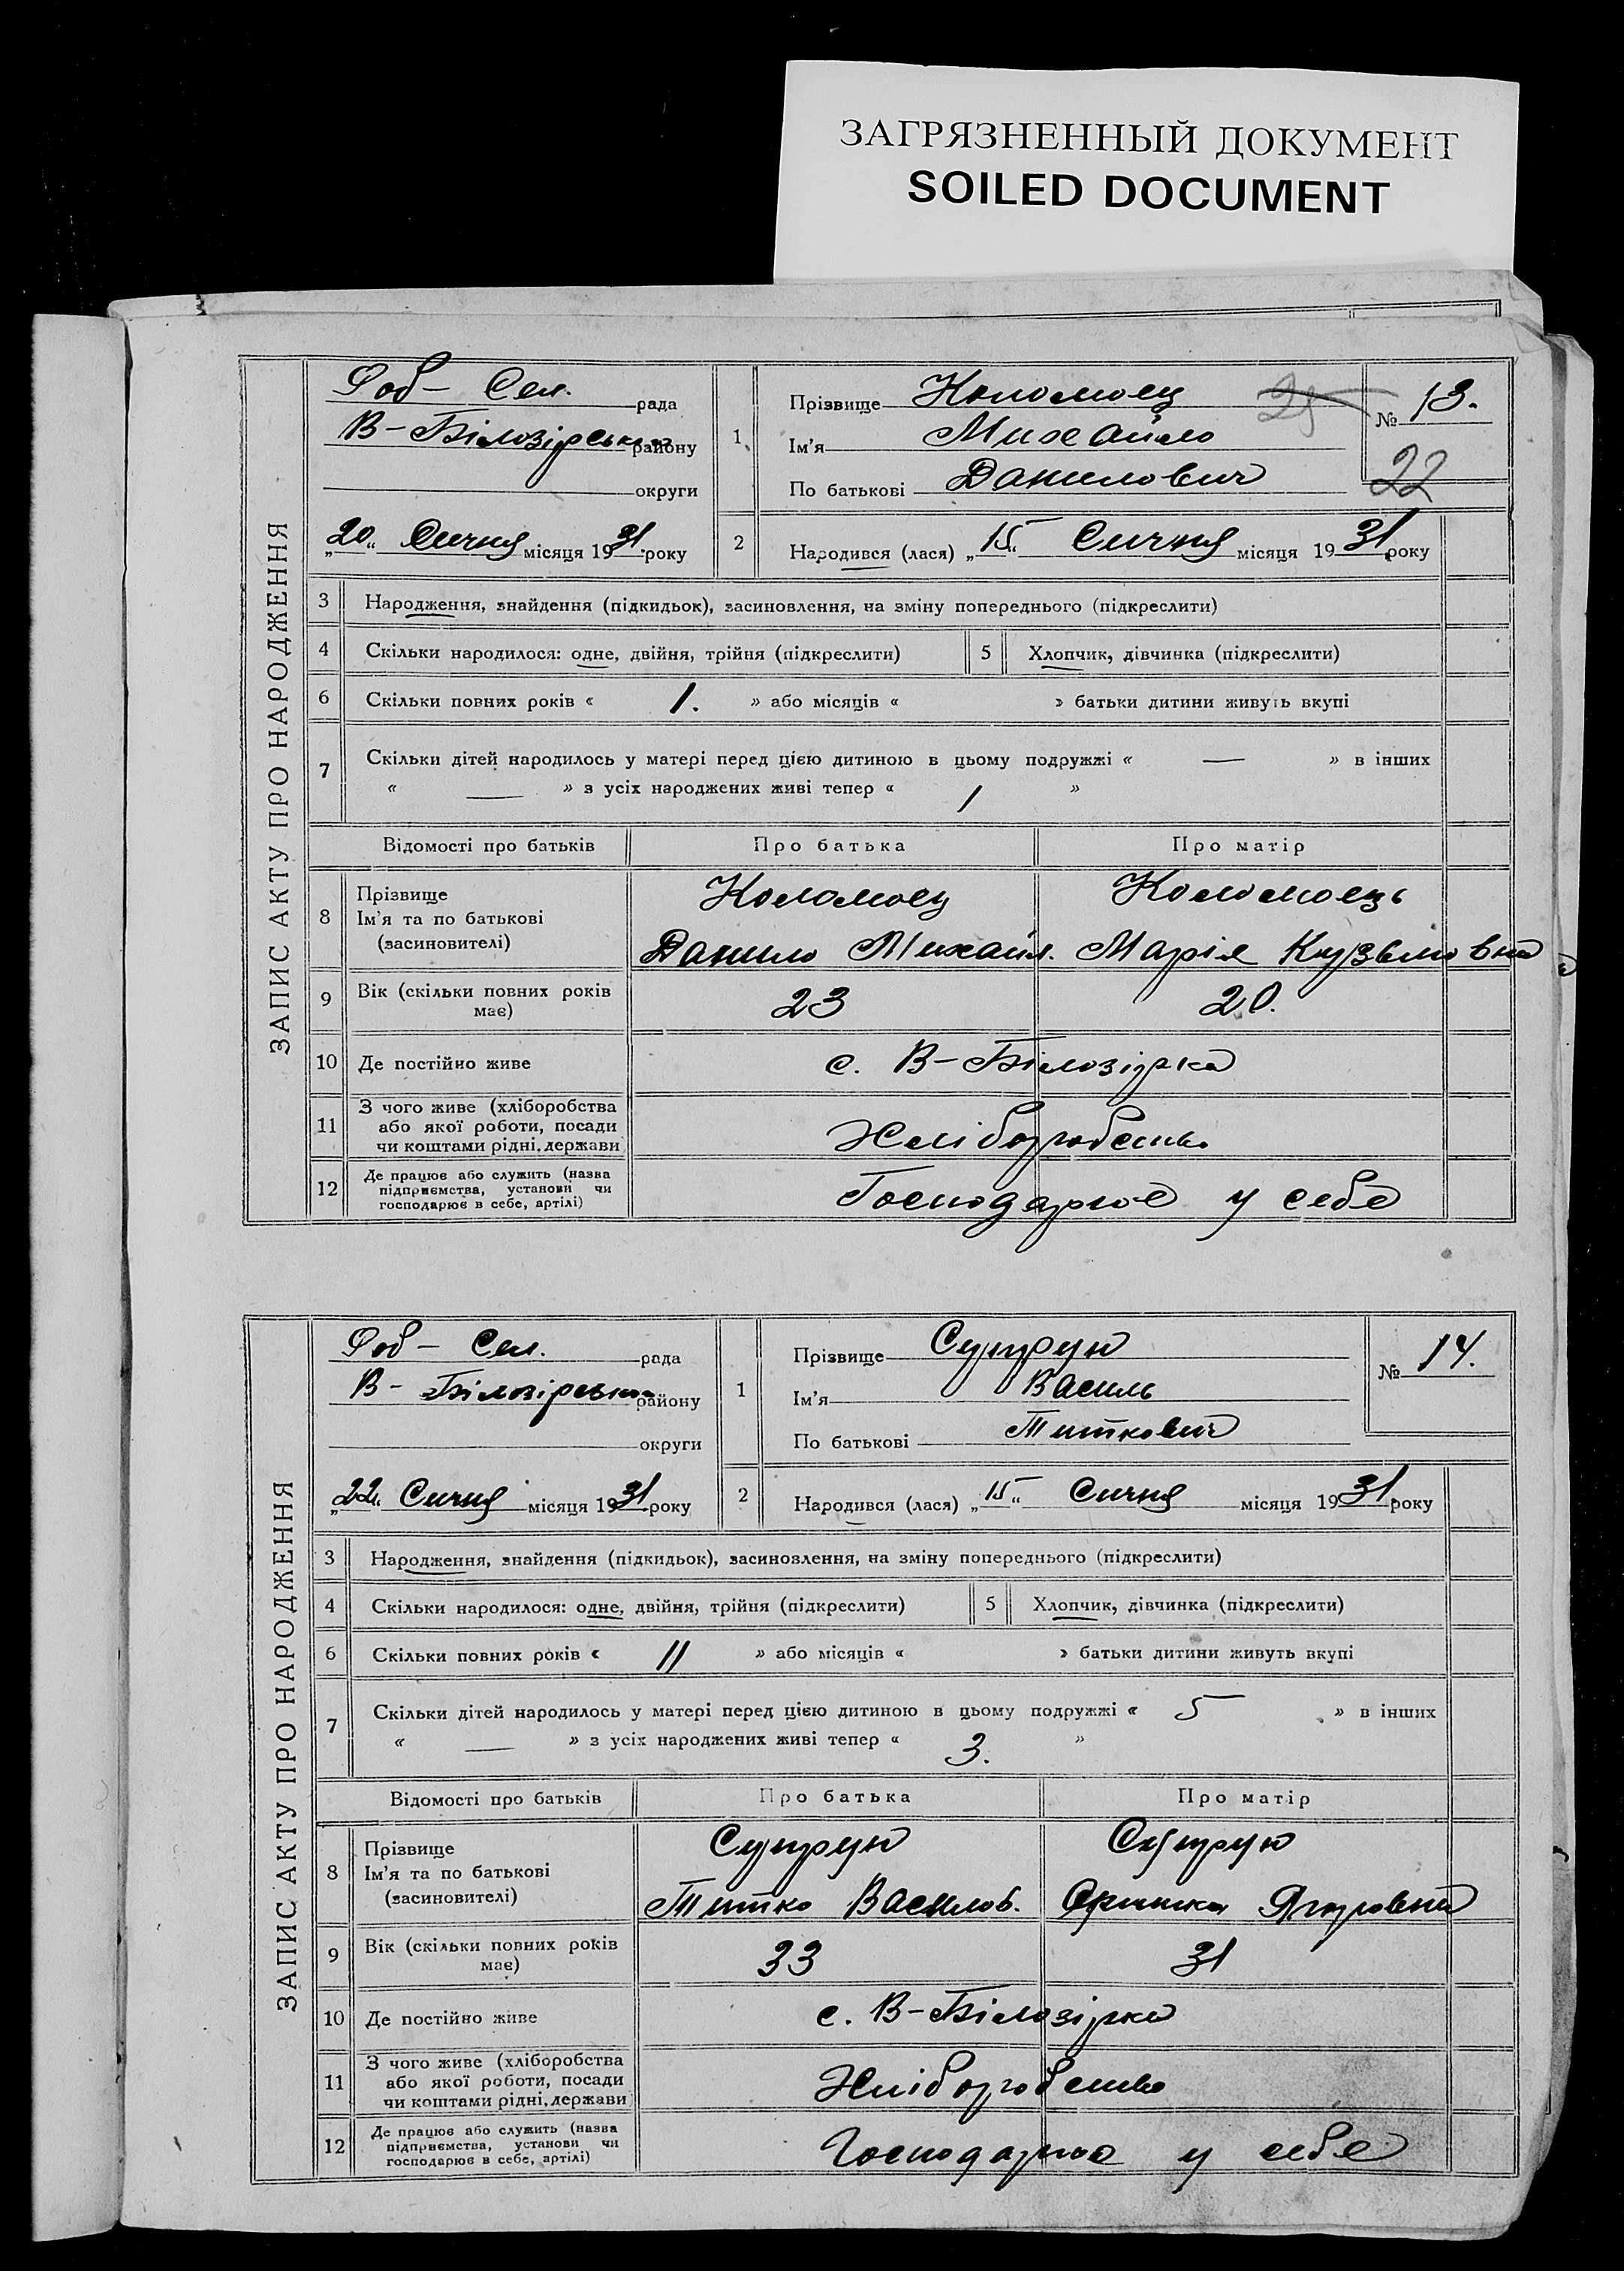 ЗАГРЯЗНЕННЫЙ ДОКУМЕНТ
SOILED DOCUMENT
ЗАПИС АКТУ ПРО НАРОДЖЕННЯ
Роб- Сел. рада
В-Білозірська району
округи
„20“ Січня місяця 1931 року
1
Прізвище Коломоец
Ім'я Михайло
По батькові Данилович
25
№ 13.
22
2
Народився (лася) „15“ Січня місяця 1931 року
3 Народження, знайдення (підкидьок), засиновлення, на зміну попереднього (підкреслити)
4 Скільки народилося: одне, двійня, трійня (підкреслити) 5 Хлопчик, дівчинка (підкреслити)
6 Скільки повних років « 1. » або місяців « » батьки дитини живуть вкупі
7 Скільки дітей народилось у матері перед цією дитиною в цьому подружжі « — » в інших
« — » з усіх народжених живі тепер « 1 »
Відомості про батьків Про батька Про матір
8 Прізвище Коломоец Коломоець
Ім'я та по батькові
(засиновителі) Данило Михайл. Марія Кузьмовна
9 Вік (скільки повних років має) 23 20.
10 Де постійно живе с. В-Білозірка
11 З чого живе (хліборобства
або якої роботи, посади
чи коштами рідні, держави Хліборобство
12 Де працює або служить (назва
підприємства, установи чи
господарює в себе, артілі) Господарює у себе
ЗАПИС АКТУ ПРО НАРОДЖЕННЯ
Роб- Сел. рада
В-Білозірська району
округи
„22“ Січня місяця 1931 року
1
Прізвище Супрун
Ім'я Василь
По батькові Титкович
№ 14.
2
Народився (лася) „15“ Січня місяця 1931 року
3 Народження, знайдення (підкидьок), засиновлення, на зміну попереднього (підкреслити)
4 Скільки народилося: одне, двійня, трійня (підкреслити) 5 Хлопчик, дівчинка (підкреслити)
6 Скільки повних років « 11 » або місяців « » батьки дитини живуть вкупі
7 Скільки дітей народилось у матері перед цією дитиною в цьому подружжі « 5 » в інших
« — » з усіх народжених живі тепер « 3. »
Відомості про батьків Про батька Про матір
8 Прізвище Супрун Супрун
Ім'я та по батькові
(засиновителі) Титко Василов. Оришка
9 Вік (скільки повних років має) 33 31
10 Де постійно живе с. В-Білозірка
11 З чого живе (хліборобства
або якої роботи, посади
чи коштами рідні, держави Хліборобство
12 Де працює або служить (назва
підприємства, установи чи
господарює в себе, артілі) Господарює у себе